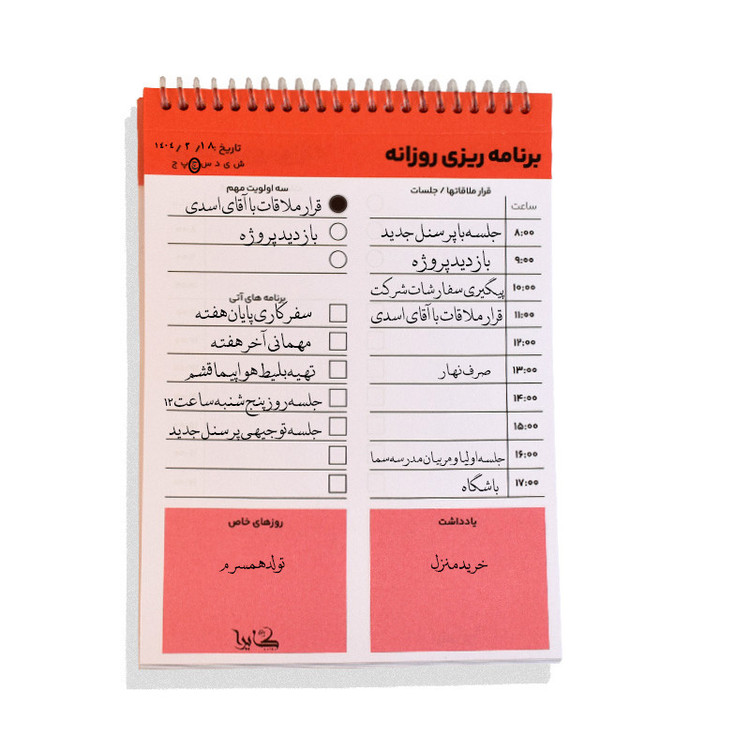 برنامه ریزی روزانه
تاریخ: ۱۴۰۴/۲/۱۸
ش ی د س چ پ ج
قرار ملاقاتها / جلسات
ساعت
۸:۰۰ جلسه با پرسنل جدید
۹:۰۰ بازدید پروژه
۱۰:۰۰ پیگیری سفارشات شرکت
۱۱:۰۰ قرار ملاقات با آقای اسدی
۱۲:۰۰
۱۳:۰۰ صرف نهار
۱۴:۰۰
۱۵:۰۰
۱۶:۰۰ جلسه اولیا و مربیان مدرسه سما
۱۷:۰۰ باشگاه
سه اولویت مهم
قرار ملاقات با آقای اسدی
بازدید پروژه
برنامه های آتی
سفر کاری پایان هفته
مهمانی آخر هفته
تهیه بلیط هواپیما قشم
جلسه روز پنج شنبه ساعت ۱۲
جلسه توجیهی پرسنل جدید
یادداشت
خرید منزل
روزهای خاص
تولد همسرم